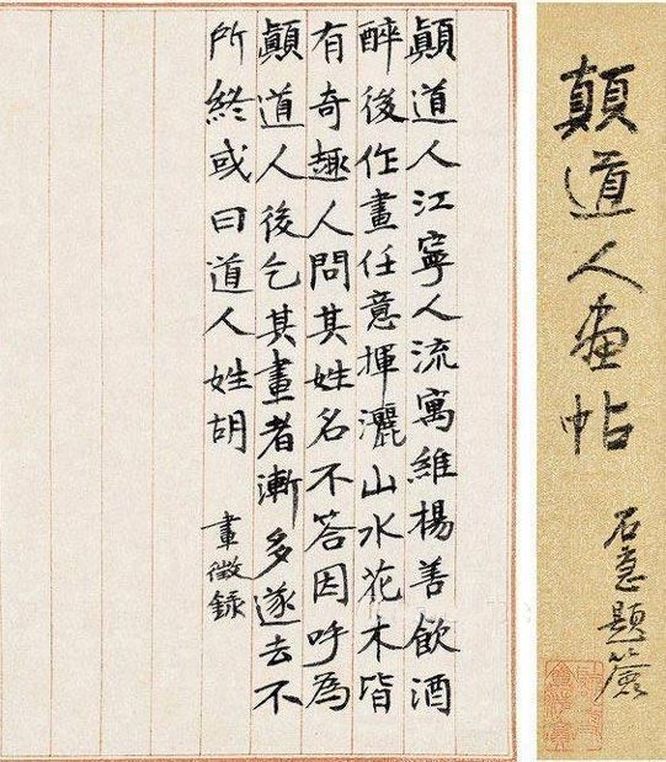 顛道人畫帖
石題簽
顛道人江寧人流寓維楊善飲酒
醉後作畫任意揮灑山水花木皆
有奇趣人問其姓名不答因呼為
顛道人後乞其畫者漸多遂去不
所終或曰道人姓胡
畫徵錄